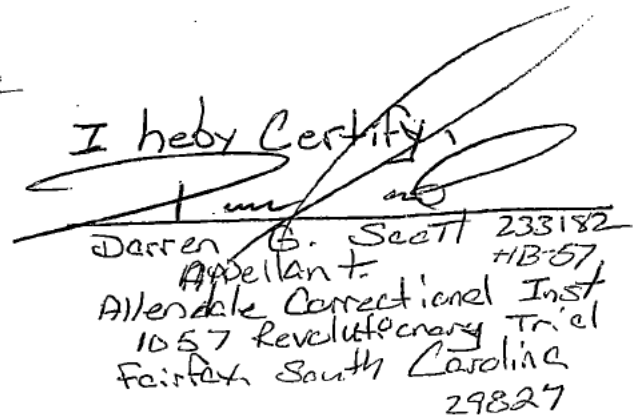 I heby Certify,
Darren G. Scott 233182
HB-57
Appellant.
Allendale Correctional Inst
1057 Revolutionary Trial
Fairfax South Carolina
29827